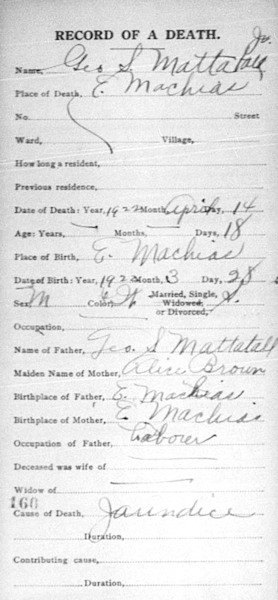 RECORD OF A DEATH.
Jr.
Name, Geo S Mattatall
Place of Death, E. Machias
No. Street
Ward, Village,
How long a resident,
Previous residence,
Date of Death: Year, 1922 Month, April Day, 14
Age: Years, — Months, — Days, 18
Place of Birth, E. Machias
Date of Birth: Year, 1922 Month, 3 Day, 28
Sex, M Color, W Married, Single, S.
Widowed,
or Divorced,
Occupation,
Name of Father, Geo. S Mattatall
Maiden Name of Mother, Alice Brown
Birthplace of Father, E. Machias
Birthplace of Mother, E. Machias
Occupation of Father, Laborer
Deceased was wife of
Widow of
160
Cause of Death, Jaundice
Duration,
Contributing cause,
Duration,